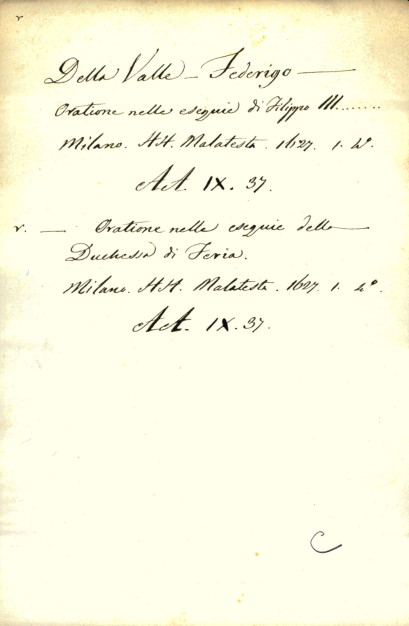 r
Della Valle – Federigo —
Oratione nelle esequie di Filippo III........
Milano. HH. Malatesta. 1627. 1. 4°.
AA. IX. 37.
r. — Oratione nelle esequie della
Duchessa di Feria.
Milano. HH. Malatesta. 1627. 1. 4°.
AA. IX. 37.
C